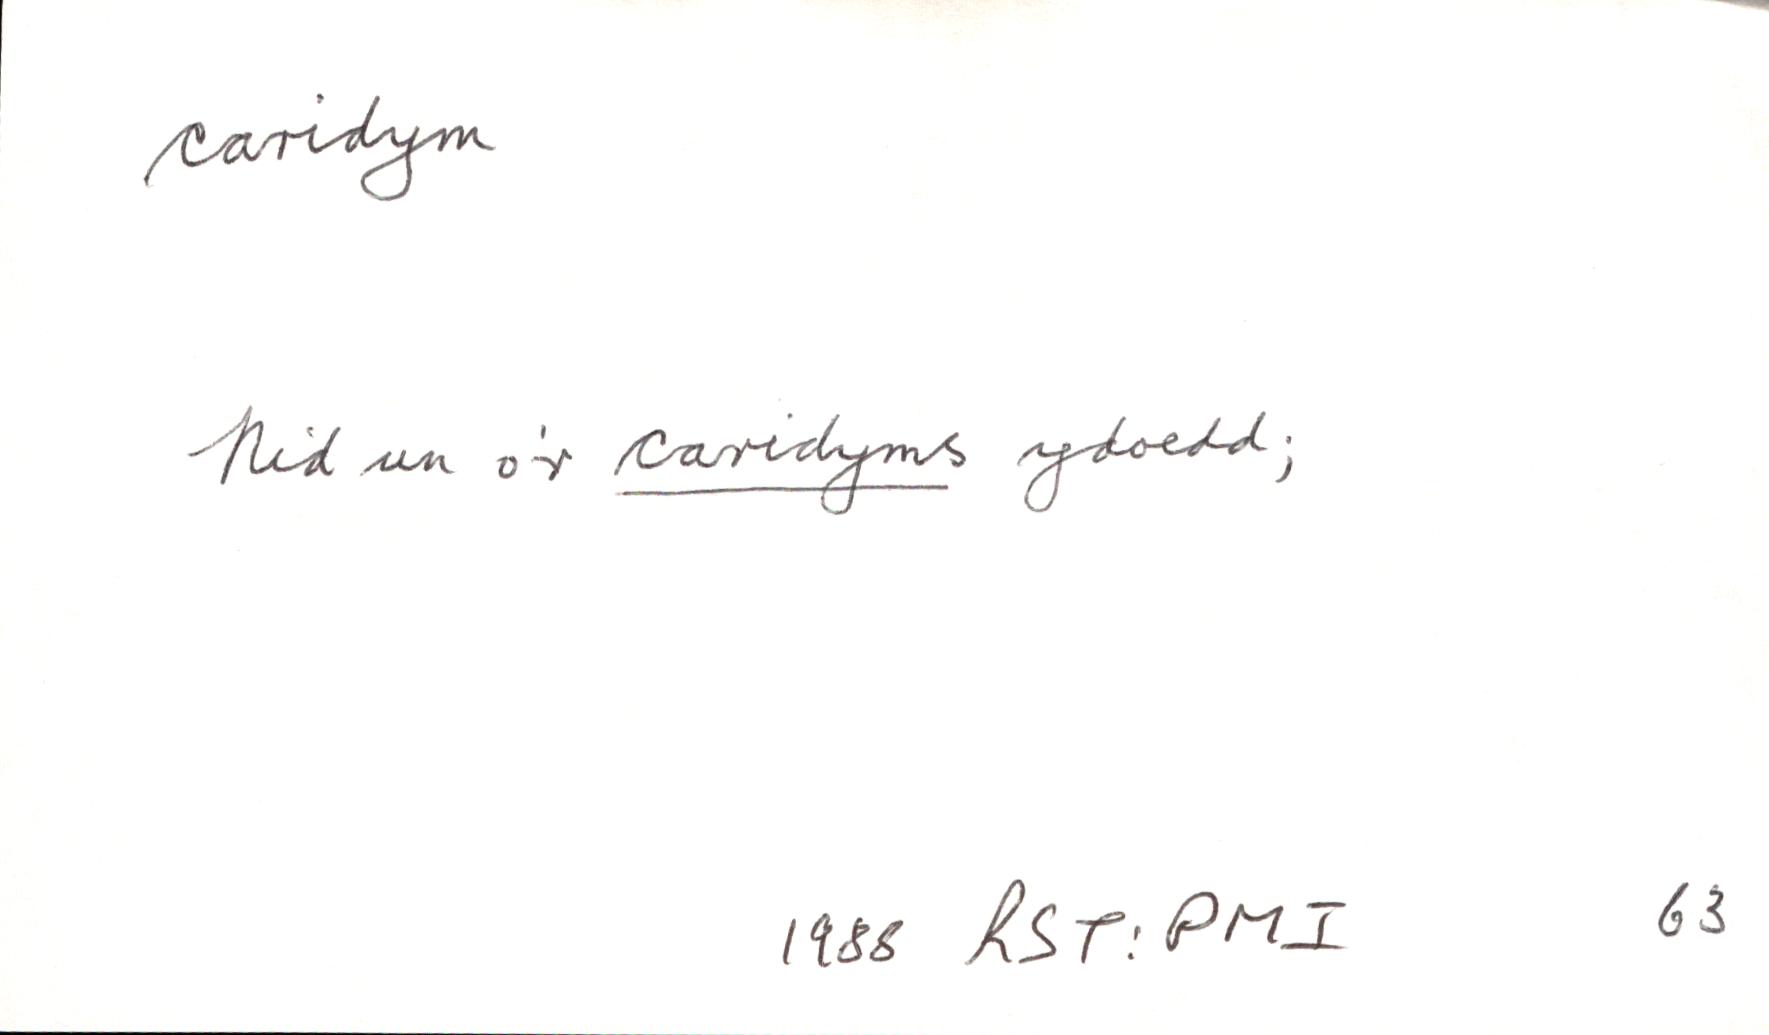 caridym
Nid un o'r caridyms ydoedd;
1988 RST: PMI 63